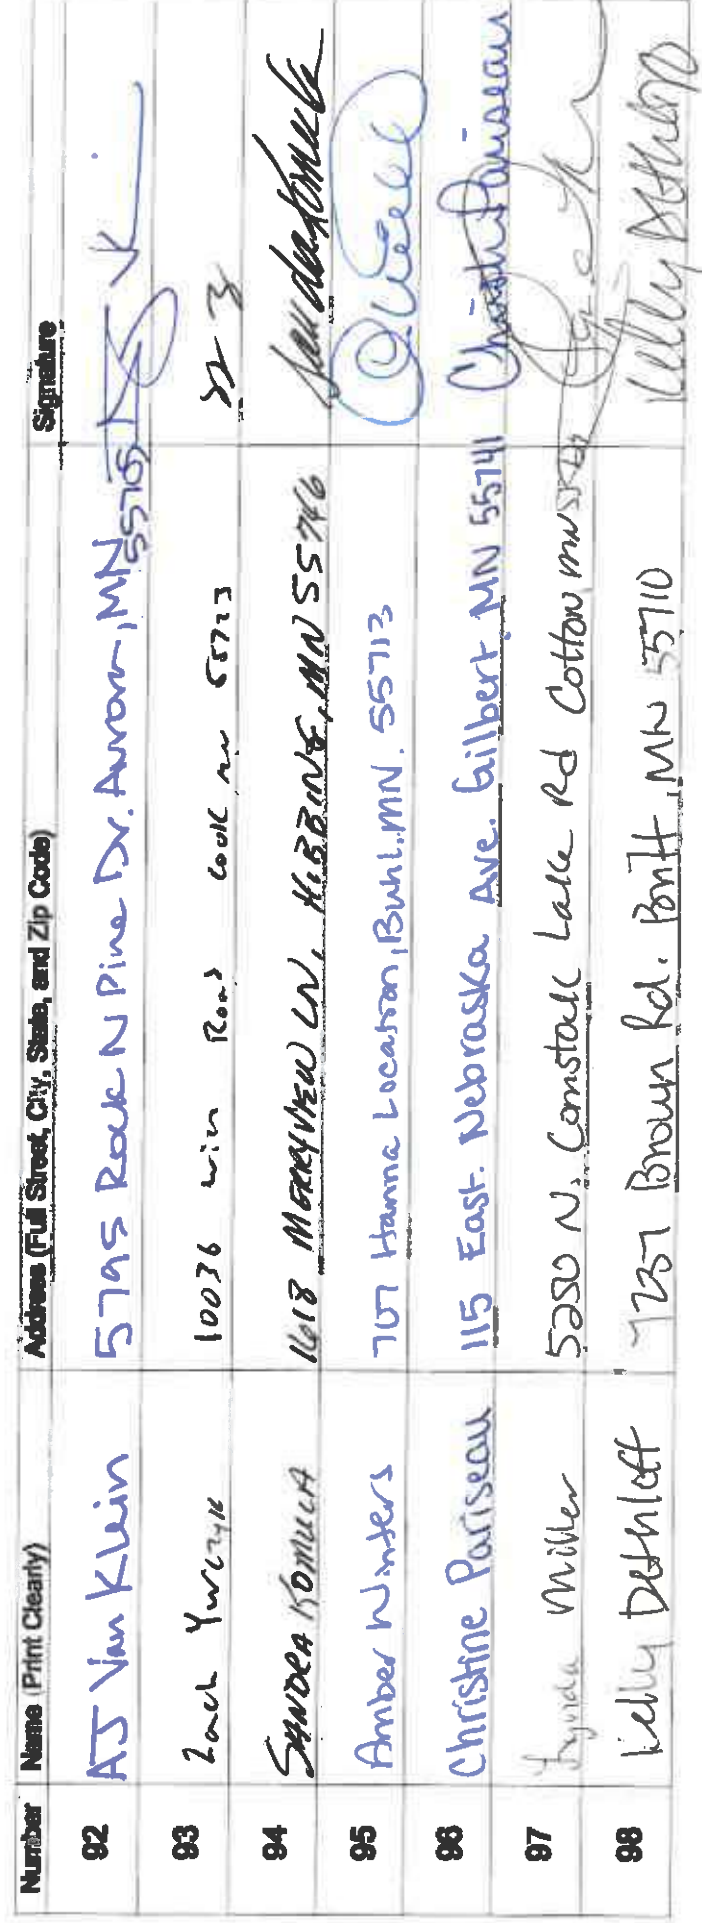 Number Name (Print Clearly) Address (Full Street, City, State, and Zip Code) Signature
92 AJ Van Klein 5795 Rock N Pine Dr. Aurora, MN 55705
93 Zach Yurczyk 10036 Road Cook mn 55723
94 SANDRA KOMULA 1618 MERRYVIEW LN. HIBBING, MN 55746 Sandra Komula
95 Amber Winters 707 Hanna Location, Buhl. MN. 55713
96 Christine Pariseau 115 East. Nebraska Ave. Gilbert, MN 55741 Christine Pariseau
97 Miller 5250 N. Comstock Lake Rd Cotton mn
98 Kelly Dethloff 7237 Brown Rd. Britt, MN 55710 Kelly Dethloff